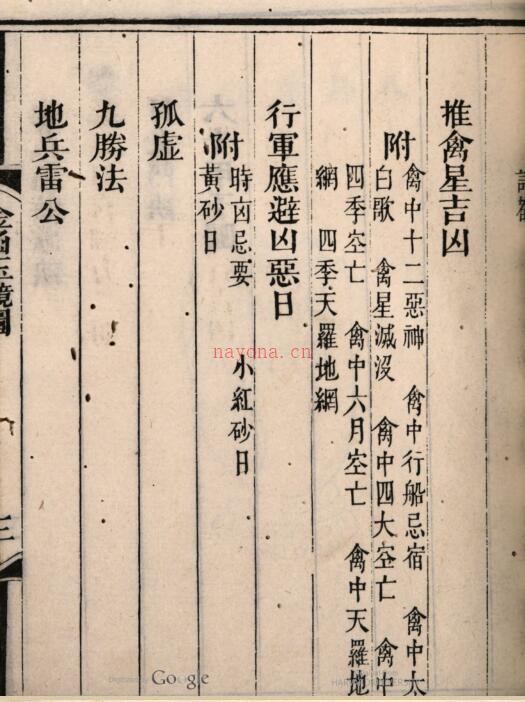 推禽星吉凶
附
禽中十二惡神　禽中行船忌宿　禽中太
白歌　禽星滅沒　禽中四大空亡　禽中
四季空亡　禽中六月空亡　禽中天羅地
網　四季天羅地網
行軍應避凶惡日
附
時卤忌要　小紅砂日
黃砂日
孤虛
九勝法
地兵雷公
金函玉鏡圖
三
nayona.cn
Google